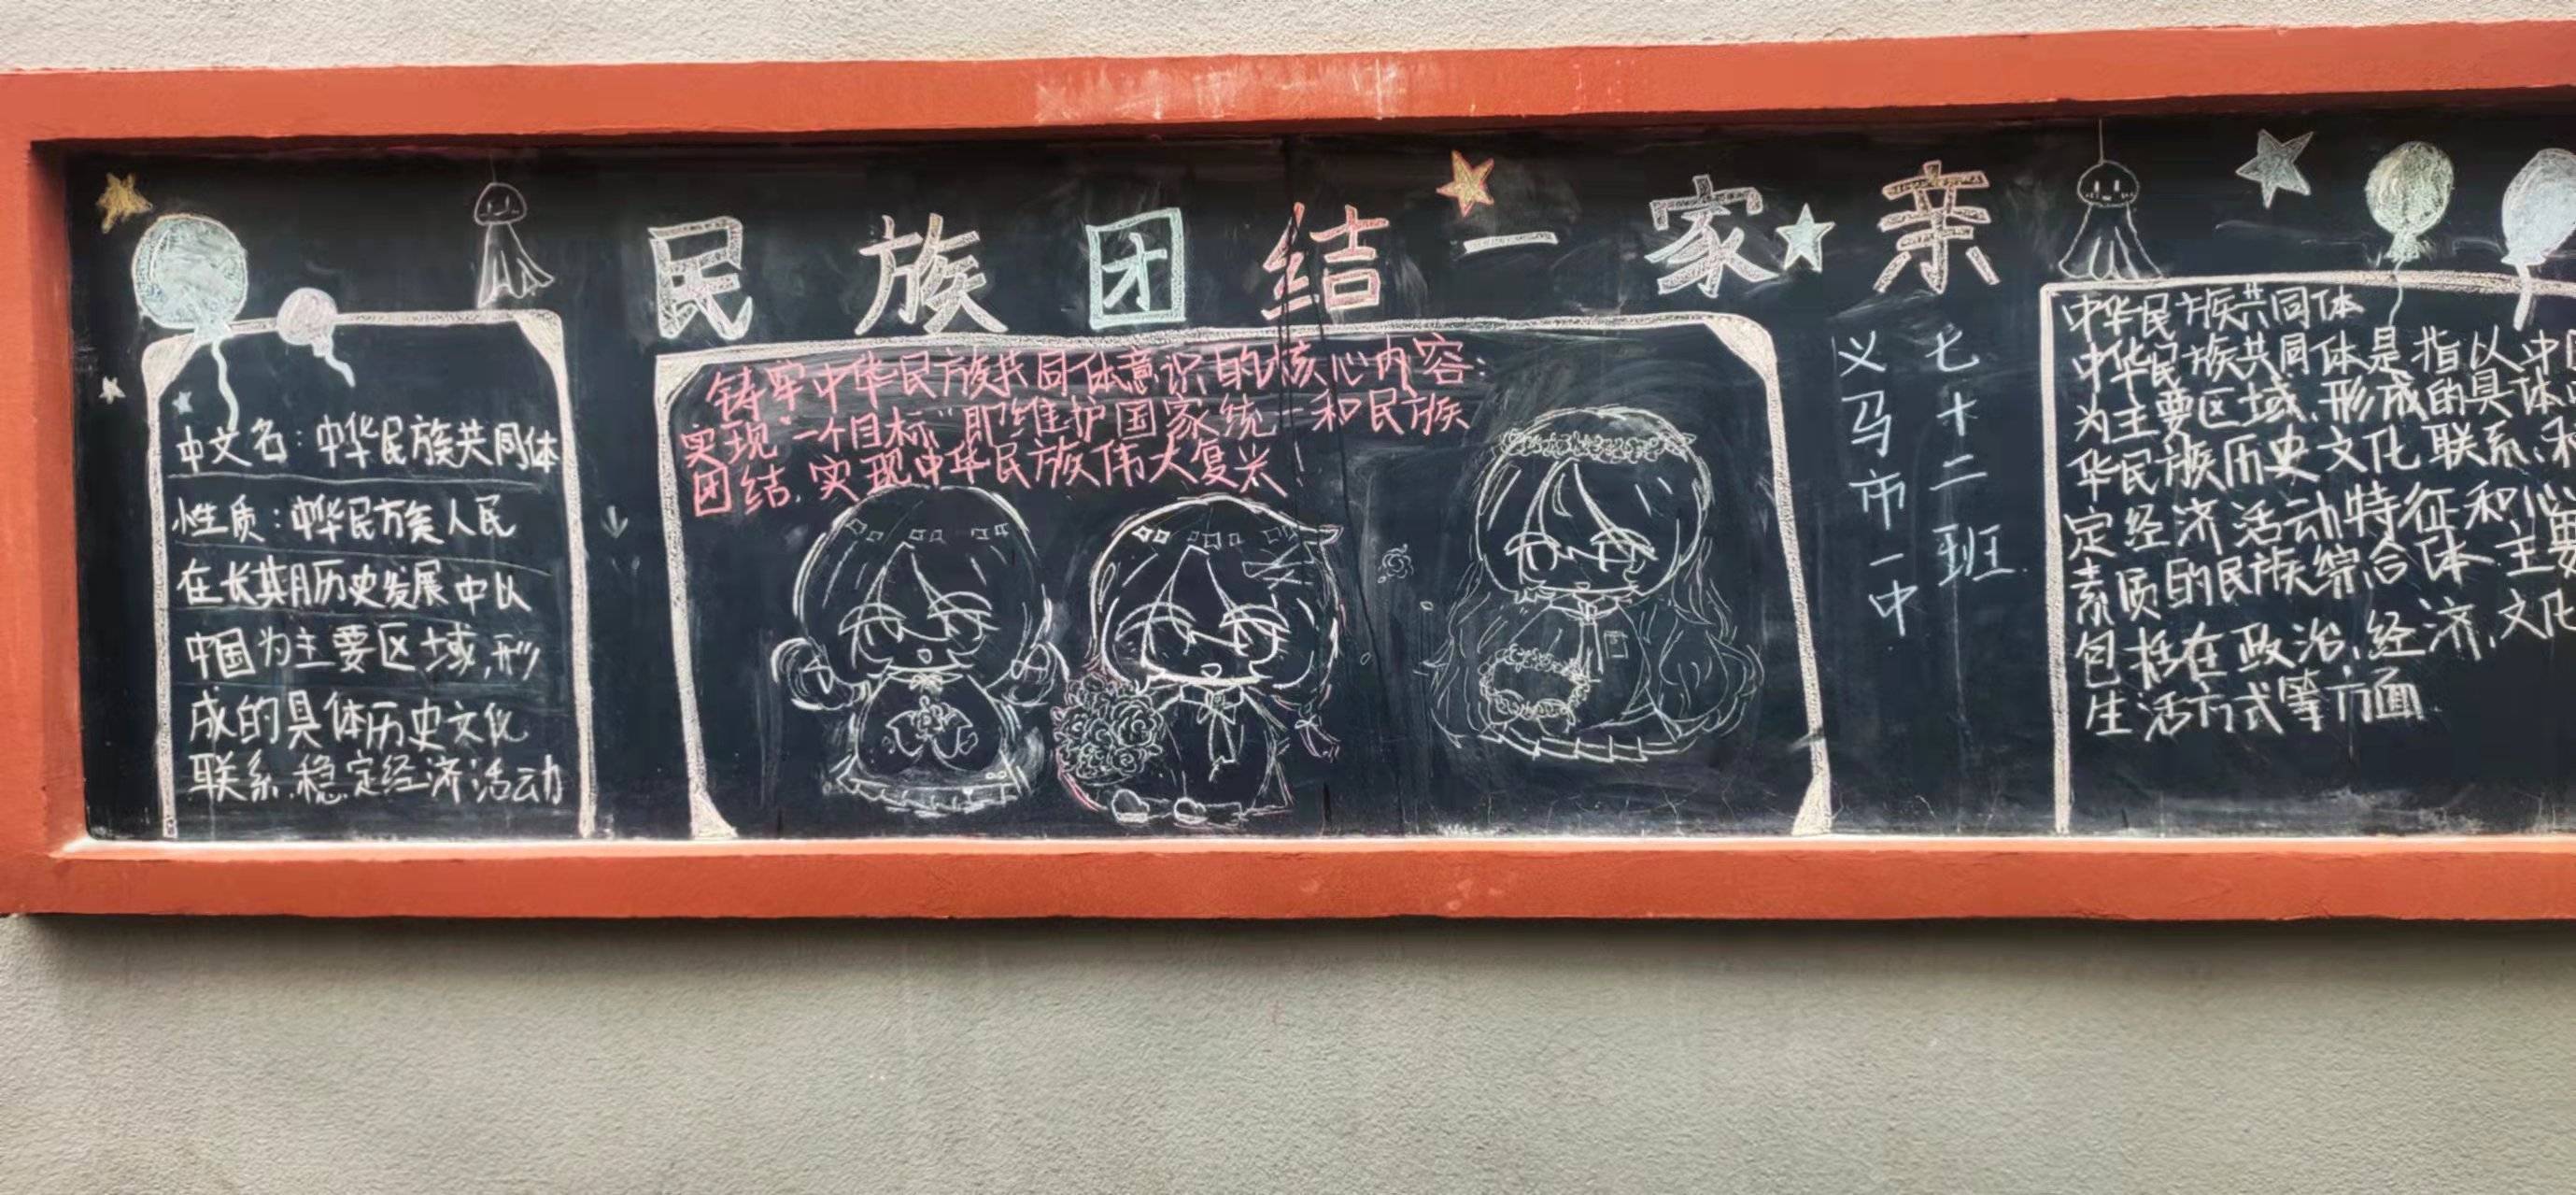 民族团结一家亲
中文名：中华民族共同体
性质：中华民族人民
在长期历史发展中以
中国为主要区域，形
成的具体历史文化
联系、稳定经济活动
铸牢中华民族共同体意识的核心内容：
实现“一个目标”即维护国家统一和民族
团结，实现中华民族伟大复兴
义马市一中
七十二班
中华民族共同体
中华民族共同体是指以中国
为主要区域，形成的具体
华民族历史文化联系、
定经济活动特征和心
素质的民族综合体。主要
包括在政治、经济、文化
生活方式等方面